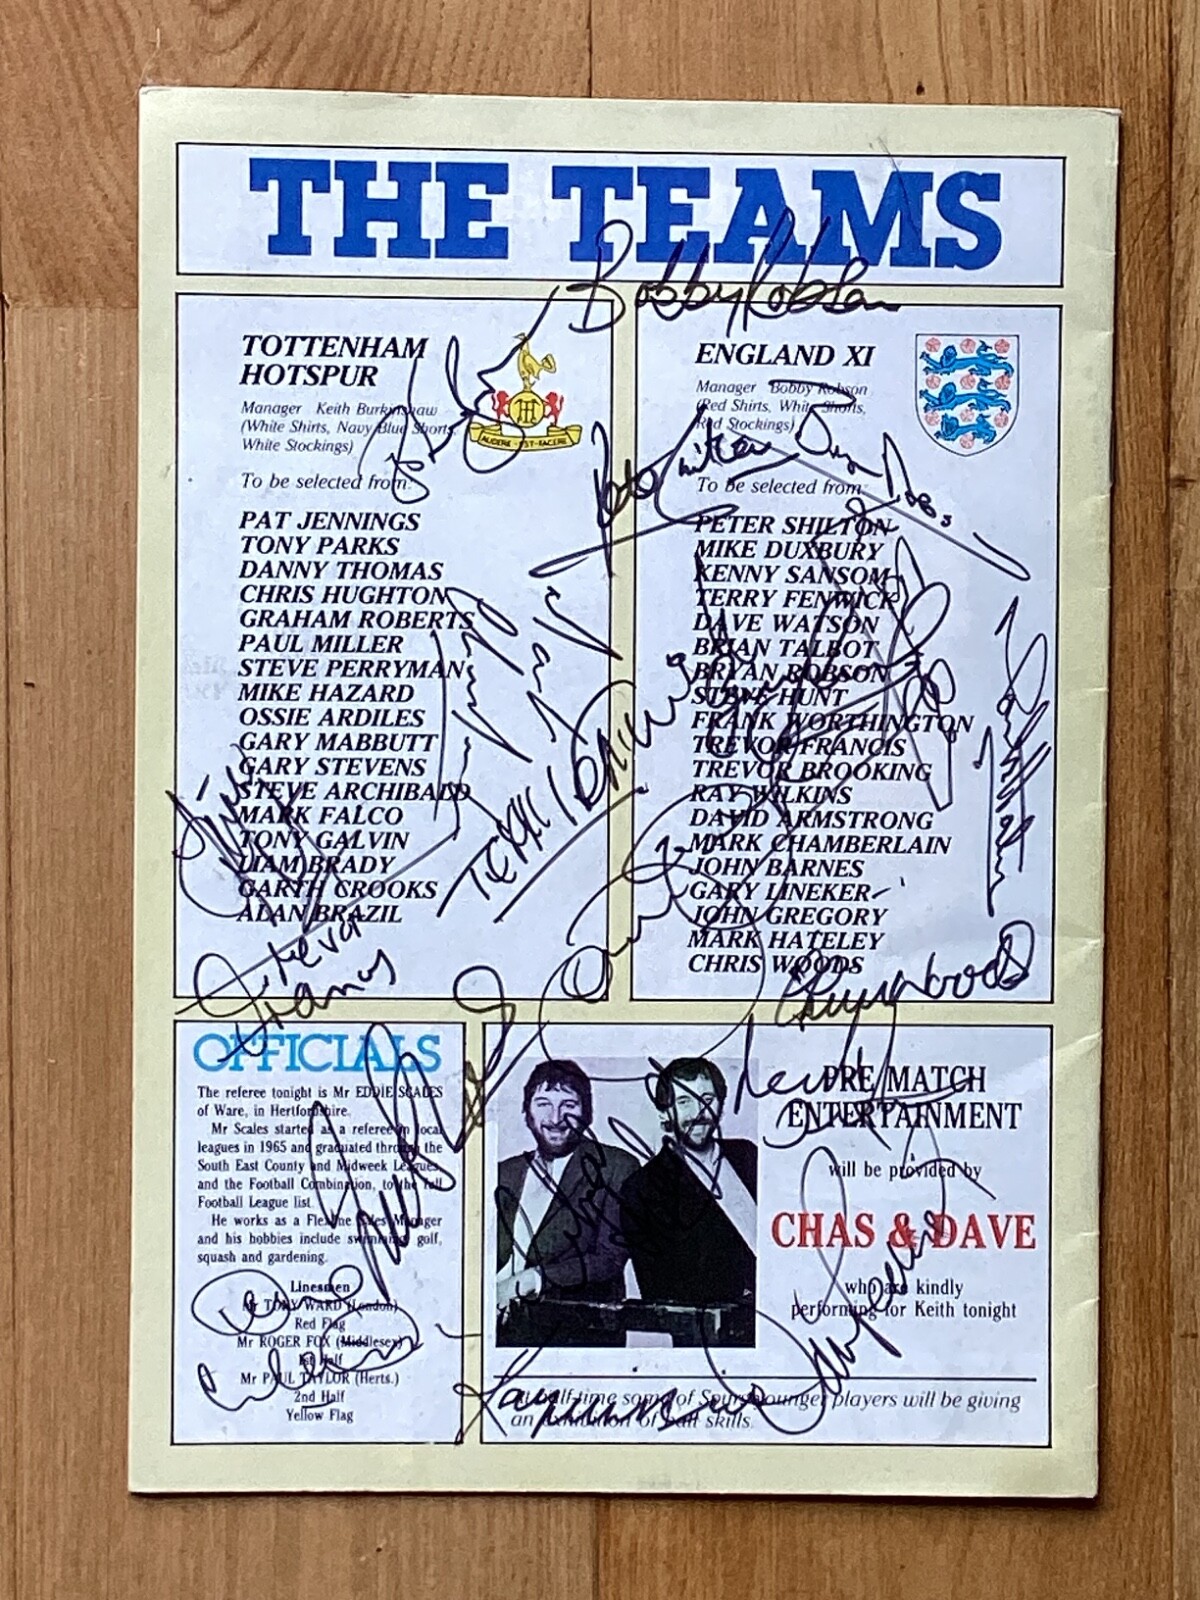 THE TEAMS
Bobby Robson
TOTTENHAM
HOTSPUR
Manager Keith Burkinshaw
(White Shirts, Navy Blue Shorts,
White Stockings)
To be selected from:
PAT JENNINGS
TONY PARKS
DANNY THOMAS
CHRIS HUGHTON
GRAHAM ROBERTS
PAUL MILLER
STEVE PERRYMAN
MIKE HAZARD
OSSIE ARDILES
GARY MABBUTT
GARY STEVENS
STEVE ARCHIBALD
MARK FALCO
TONY GALVIN
LIAM BRADY
GARTH CROOKS
ALAN BRAZIL
AUDERE-EST-FACERE
ENGLAND XI
Manager Bobby Robson
(Red Shirts, White Shorts,
Red Stockings)
To be selected from:
PETER SHILTON
MIKE DUXBURY
KENNY SANSOM
TERRY FENWICK
DAVE WATSON
BRIAN TALBOT
BRYAN ROBSON
STEVE HUNT
FRANK WORTHINGTON
TREVOR FRANCIS
TREVOR BROOKING
RAY WILKINS
DAVID ARMSTRONG
MARK CHAMBERLAIN
JOHN BARNES
GARY LINEKER
JOHN GREGORY
MARK HATELEY
CHRIS WOODS
Terry Fenwick
Trevor
Francis
Chris Woods
OFFICIALS
The referee tonight is Mr EDDIE SCALES
of Ware, in Hertfordshire.
Mr Scales started as a referee in local
leagues in 1965 and graduated through the
South East County and Midweek Leagues,
and the Football Combination, to the full
Football League list.
He works as a Flexine Sales Manager
and his hobbies include swimming, golf,
squash and gardening.
Linesmen
Mr TONY WARD (London)
Red Flag
Mr ROGER FOX (Middlesex)
1st Half
Mr PAUL TAYLOR (Herts.)
2nd Half
Yellow Flag
PRE MATCH
ENTERTAINMENT
will be provided by
CHAS & DAVE
who are kindly
performing for Keith tonight
At half-time some of Spurs younger players will be giving
an exhibition of ball skills.